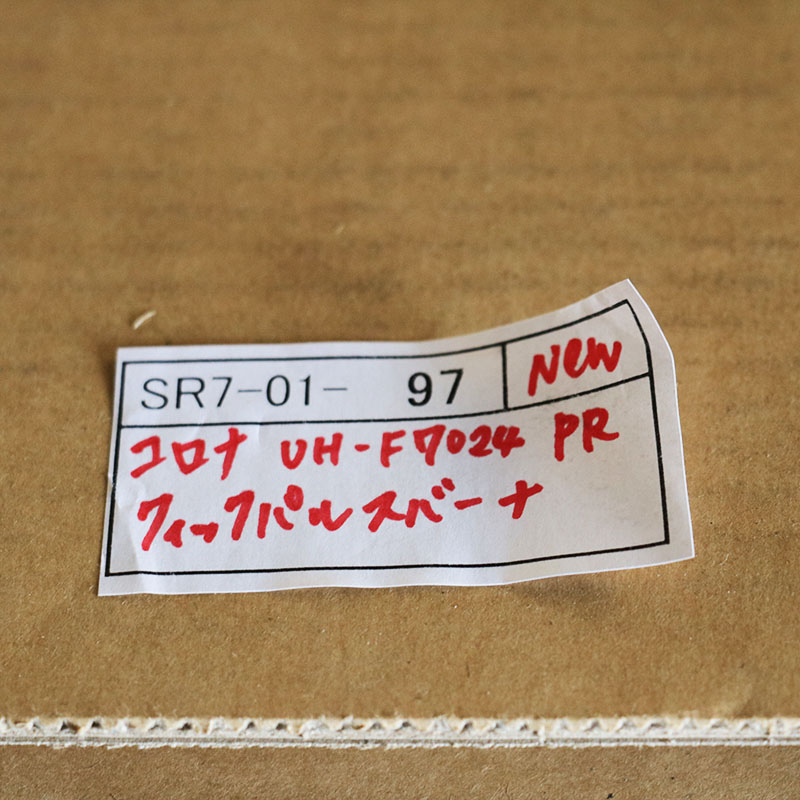 SR7-01- 97 New
コロナ UH-F7024 PR
フィックパルスバーナ